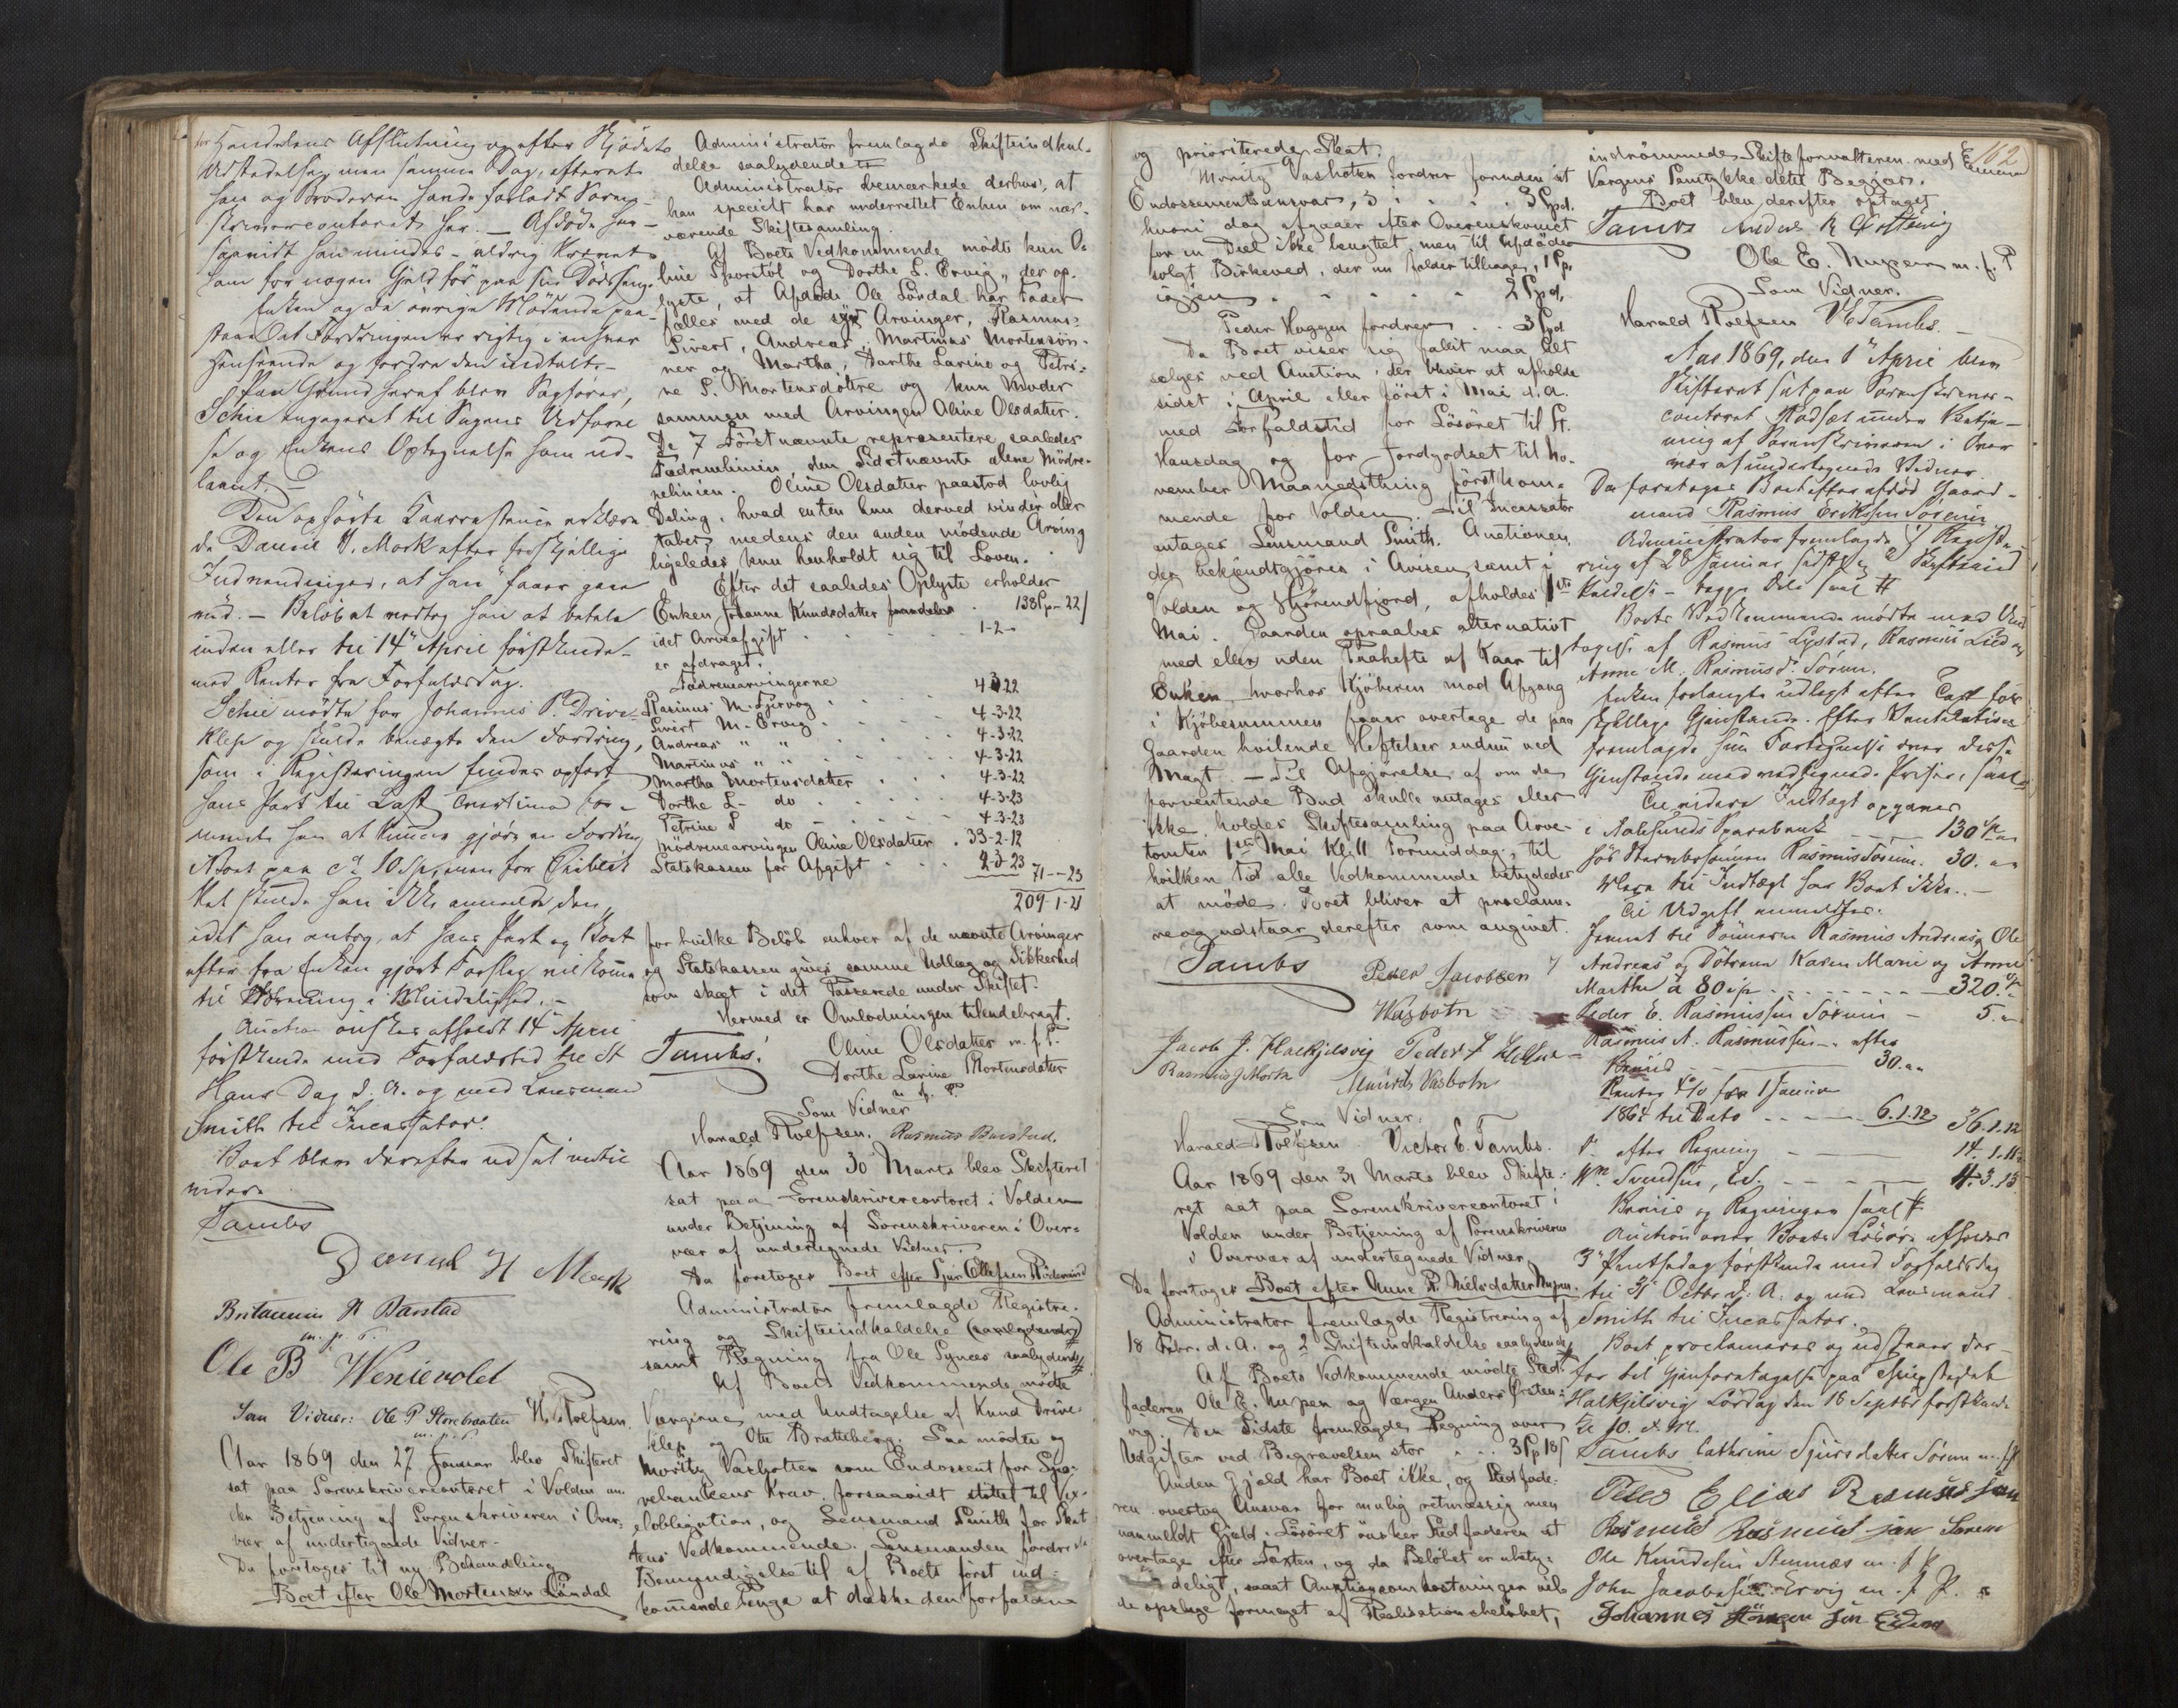 for Handelens Afslutning og efter Skjødets
Udstedelse, men samme Dag, efterat
han og Broderen havde forladt Soren-
skrivercontoret her. — Afdøde har
saavidt han mindes - aldrig krævet
ham for nogen Gjeld før paa sin Dødsseng.
Enken og de øvrige Mødende paa-
staar at Fordringen er rigtig i enhver
Henseende og fordre den indtalt. -
Paa Grund heraf blev Sagfører
Schie engageret til Sagens Udførel
se og Enkens Optegnelse ham ud-
leveret.
Den opførte Kaarrestance erklære-
de Daniel H. Mork efter forskjellige
Indvendinger, at han faaer gaae
ind. - Beløbet vedtog han at betale
inden eller til 14de April førstkmde
med Renter fra Forfaldsdag.
Schie mødte for Johannes P. Drive-
klep og skulde benægte den Fordring,
som i Registreringen findes opført
hans Part til Last.
Boet paa ca 10 Spd, men for Thiltil
idet han antog, at hans Part og Boet
efter fra Enken gjort Forslag vil komme
til Ordning i Mindelighed. -
Auction ønskes afholdt 14de April
førstkmde med Forfaldstid til St
Hans Dag d. A. og med Lensmand
Smith til Incassator.
Boet blev derefter udsat indtil
videre.
Tambs
Daniel H Mork
Britanus N Barstad
m. p. P.
Ole B Wenievolet
Som Vidner: Ole P. Storebraaten H. Rolfsen.
m. p. P.
Aar 1869 den 27 Januar blev Skifteret
sat paa Sorenskrivercontoret i Volden un
der Betjening af Sorenskriveren i Over-
vær af undertegnede Vidner.
Da foretoges til ny Behandling
Boet efter Ole Mortensen Løndal
Administrator fremlagde Skifteindkal-
delse saalydende
Administrator bemærkede derhos, at
han specielt har underrettet Enken om nær-
værende Skiftesamling.
Af Boets Vedkommende mødte kun O-
line Sporstøl og Dorthe L. Ervig, der op-
lyste, at Afdøde Ole Løndal har Fader
fælles med de syv Arvinger, Rasmus,
Sivert, Andreas, Martinus Mortensøn-
ner og Martha, Dorthe Larine og Petri-
ne S. Mortensdøtre og kun Moder
sammen med Arvingen Oline Olsdatter.
De 7 Førstnævnte repræsentere saaledes
Fædrenelinien, den Sidstnævnte alene Mødre-
nelinien. Oline Olsdatter paastod lovlig
Deling, hvad enten hun derved vinder eller
taber, medens den anden mødende Arving
ligeledes kun henholdt sig til Loven.
Efter det saaledes Oplyste erholder
Enken Johanne Knudsdatter fremdeles . 138 Sp - 22 s
idet Arveafgift . . . 1-2-
er afdraget.
Fædrenearvingerne
Rasmus M. Fjervog . . 4 3 22
Sivert M. Ervig . . 4-3-22
Andreas " " . . 4-3-22
Martinus " " . . 4-3-22
Martha Mortensdatter . . 4-3-22
Dorthe L. do . . 4-3-23
Petrine S do . . 4-3-23
Mødrenearvingen Oline Olsdatter . 33-2-12
Statskassen for Afgift . . 2-3-23 71--23
209-1-21
for hvilke Beløb enhver af de nævnte Arvinger
og Statskassen gives samme Udlæg og Sikkerhed
som skeet i det Passerede under Skiftet.
Hermed er Omlodningen tilendebragt.
Tambs. Oline Olsdatter m. f. P.
Dorthe Larine Mortensdatter
m. f. P.
Som Vidner
Harald Rolfsen. Rasmus Barstad.
Aar 1869 den 30 Marts blev Skifteret
sat paa Sorenskrivercontoret i Volden
under Betjening af Sorenskriveren i Over-
vær af undertegnede Vidner.
Da foretoges Boet efter Sjur Ellefsen Rødmind
Administrator fremlagde Registre-
ring og Skifteindkaldelse (saalydende)
samt Regning fra Ole Synes saalydende
Af Boets Vedkommende mødte
Værgerne med Undtagelse af Knud Drive-
klep og Ole Bratteberg. Saa mødte og
Moritz Vasbotten som Endossent for Spa-
rebankens Krav, forsaavidt støttet til Vex-
elobligation, og Lensmand Smith for Skat-
tens Vedkommende. Lensmanden fordrede
Bemyndigelse til af Boets først ind-
kommende Penge at dække den forfaldne
og prioriterede Skat.
Moritz Vasbotten fordrer foruden sit
Endossementsansvar, 3 . . . 3 Spd.
hvori dog afgaaer efter Overenskomst
for en Deel ikke benyttet, men til Afdøde
solgt Birkeved, der nu falder tilbage, 1 Sp,
igjen . . . . . 2 Spd.
Peder Haggen fordrer . . 3 Spd
Da Boet viser sig fallit maa Alt
sælges ved Auction, der bliver at afholde
sidst i April eller først i Mai d. A.
med Forfaldstid for Løsøret til St.
Hansdag og for Jordgodset til No-
vember Maanedsthing førstkom-
mende for Volden. Til Incassator
antages Lensmand Smith. Auctionen,
der bekjendtgjøres i Avisen samt i
Volden og Hjørendfjord, afholdes 1ste
Mai. Gaarden opraabes alternativt
med eller uden Paahefte af Kaar til
Enken, hvorhos Kjøberen mod Afgang
i Kjøbesummen faaer overtage de paa
Gaarden hvilende Heftelser endnu ved
Magt. — Til Afgjørelse af om de
forventende Bud skulle antages eller
ikke, holdes Skiftesamling paa Arve-
tomten 1ste Mai Kl. 11 Formiddag, til
hvilken Tid alle Vedkommende betydedes
at møde. Boet bliver at proclame-
re og udstaar derefter som angivet.
Tambs Peder Jacobsen
Wasbotn
Jacob J. Halkjelsvig Peder J
Rasmus J Mork Mauritz Vasbotn
Som Vidner.
Harald Rolfsen. Victor E. Tambs.
Aar 1869 den 31 Marts blev Skifte-
ret sat paa Sorenskrivercontoret i
Volden under Betjening af Sorenskriveren
i Overvær af undertegnede Vidner.
Da foretoges Boet efter Anne P. Nielsdatter Nupen.
Administrator fremlagde Registrering af
18 Febr. d. A. og 2 Skifteindkaldelse saalydende
Af Boets Vedkommende mødte Sted-
faderen Ole E. Nupen og Værgen Anders Ørsten-
vig. Den Sidste fremlagde Regning over
Udgifter ved Begravelsen stor . . . 3 Sp 18 s
Anden Gjæld har Boet ikke, og Stedfade-
ren overtog Ansvar for mulig retmæssig men
uanmeldt Gjæld. Løsøret ønsker Stedfaderen at
overtage efter Taxten, og da Beløbet er ubety-
deligt, samt Auctionsomkostninger vil-
de opsluge formeget af Realisationsbeløbet,
162
indrømmedes Skifteforvalteren med
Værgens Samtykke dette Begjær.
Boet blev derefter optaget
Tambs Anders R Ørstenvig
Ole E. Nupen m. f. P
Som Vidner.
Harald Rolfsen VETambs. -
Aar 1869, den 1ste April blev
Skifteret sat paa Sorenskriver-
contoret Rødsæt under Betje-
ning af Sorenskriveren i Over
vær af undertegnede Vidner
Da foretoges Boet efter afdød Gaard-
mand Rasmus Eriksen Sørein
Administrator fremlagde 1) Registre-
ring af 28 Januar sidstl. og 2 Skifteind
kaldelse - begge dele saal #
Boets Vedkommende mødte med Und
tagelse af Rasmus Lystad, Rasmus Lied og
Anne M. Rasmusd. Sørein.
Enken forlangte udlagt efter Taxt for
skjellige Gjenstande. Efter Ventilation
fremlagde hun Fortegnelse over disse
Gjenstande med vedtegnede Priser, saal
Til videre Indtægt opgaves
i Aalesunds Sparebank — — 130 Sp "
hos Rasmus Sørein. 30. " "
Mere til Indtægt har Boet ikke. —
Til Udgift anmeldtes:
Hjemmt til Sønnerne Rasmus Andreas, Ole
Andreas og Døtrene Karen Marie og Anne
Marthe á 80 Sp - - - - - 320. Sp
Peder E. Rasmussen Sørein — 5. "
Rasmus A. Rasmussen efter
30. " "
Renter 4% fra 1 Januar
1864 til Dato - - - - 6.1.12 36.1.12
do efter Regning — — 14.1.11
Wm. Svendsen, Ed. - - - - 4.3.13
Beviis og Regninger saal #
Auction over Boets Løsøre afholdes
3de Pintsedag førstkmde med Forfaldsdag
til 31 Octbr d. A. og med Lensmand
Smith til Incassator.
Boet proclameres og udstaaer der-
for til Gjenforetagelse paa Thingstedet
Halkjelsvig Lørdag den 18 Septbr førstkmde
Kl 10. F. M.
Tambs Cathrine Sjursdatter Sørein m. f. P
Peder Elias Rasmussen
Rasmus Rasmussøn Sørem
Ole Knudsen Steinnæs m. f. P.
John Jacobsen Ervig m. f. P.
Johannes